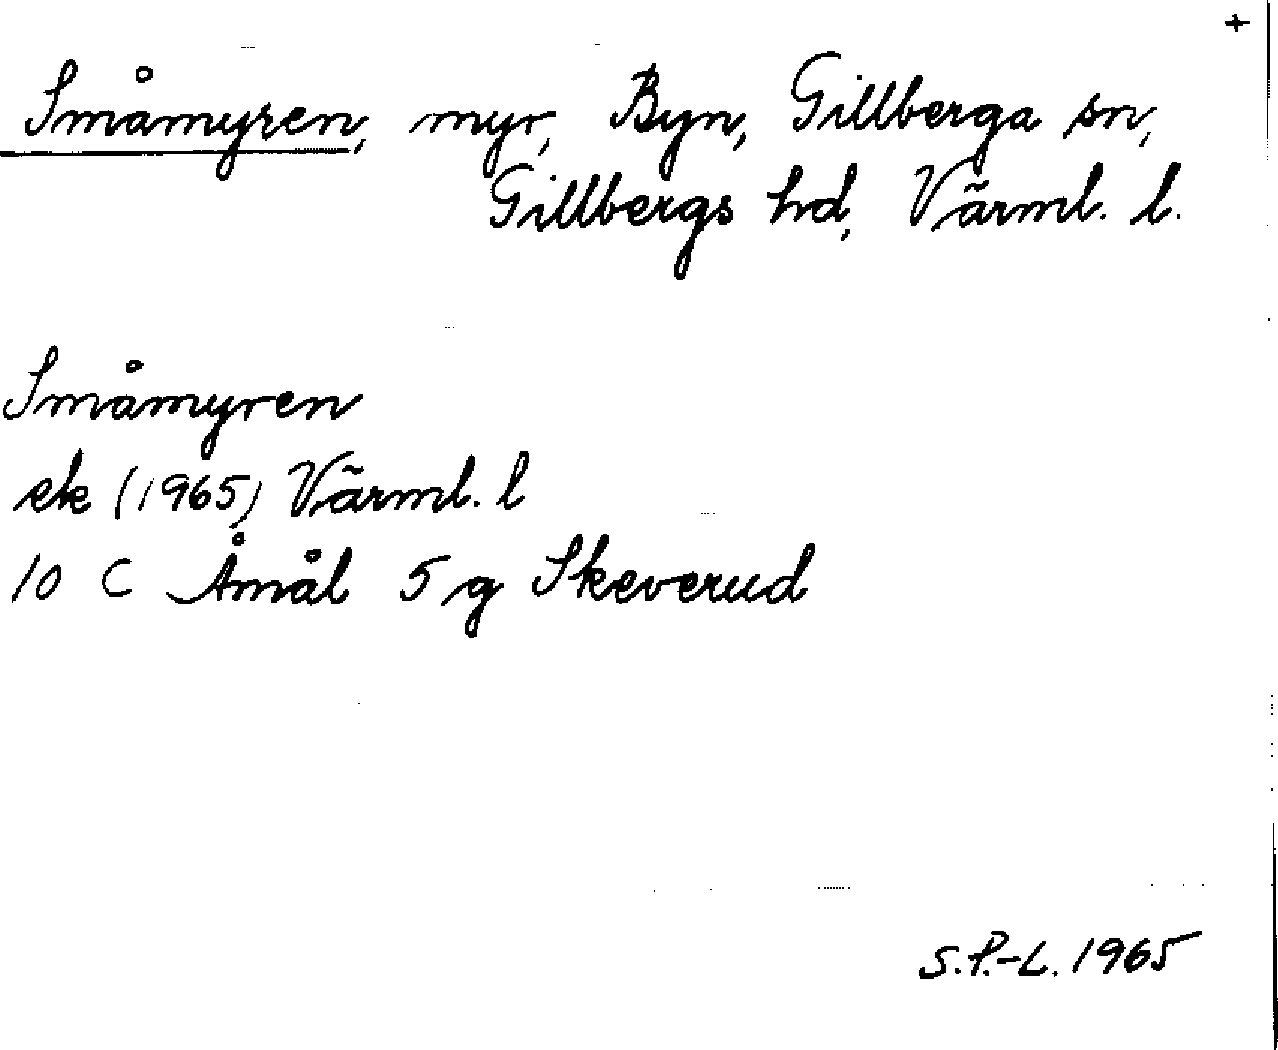 +
Småmyren, myr, Byn, Gillberga sn,
Gillbergs hd, Värml. l.
Småmyren
ek (1965) Värml. l
10 C Åmål 5 g Skeverud
S.P.-L. 1965